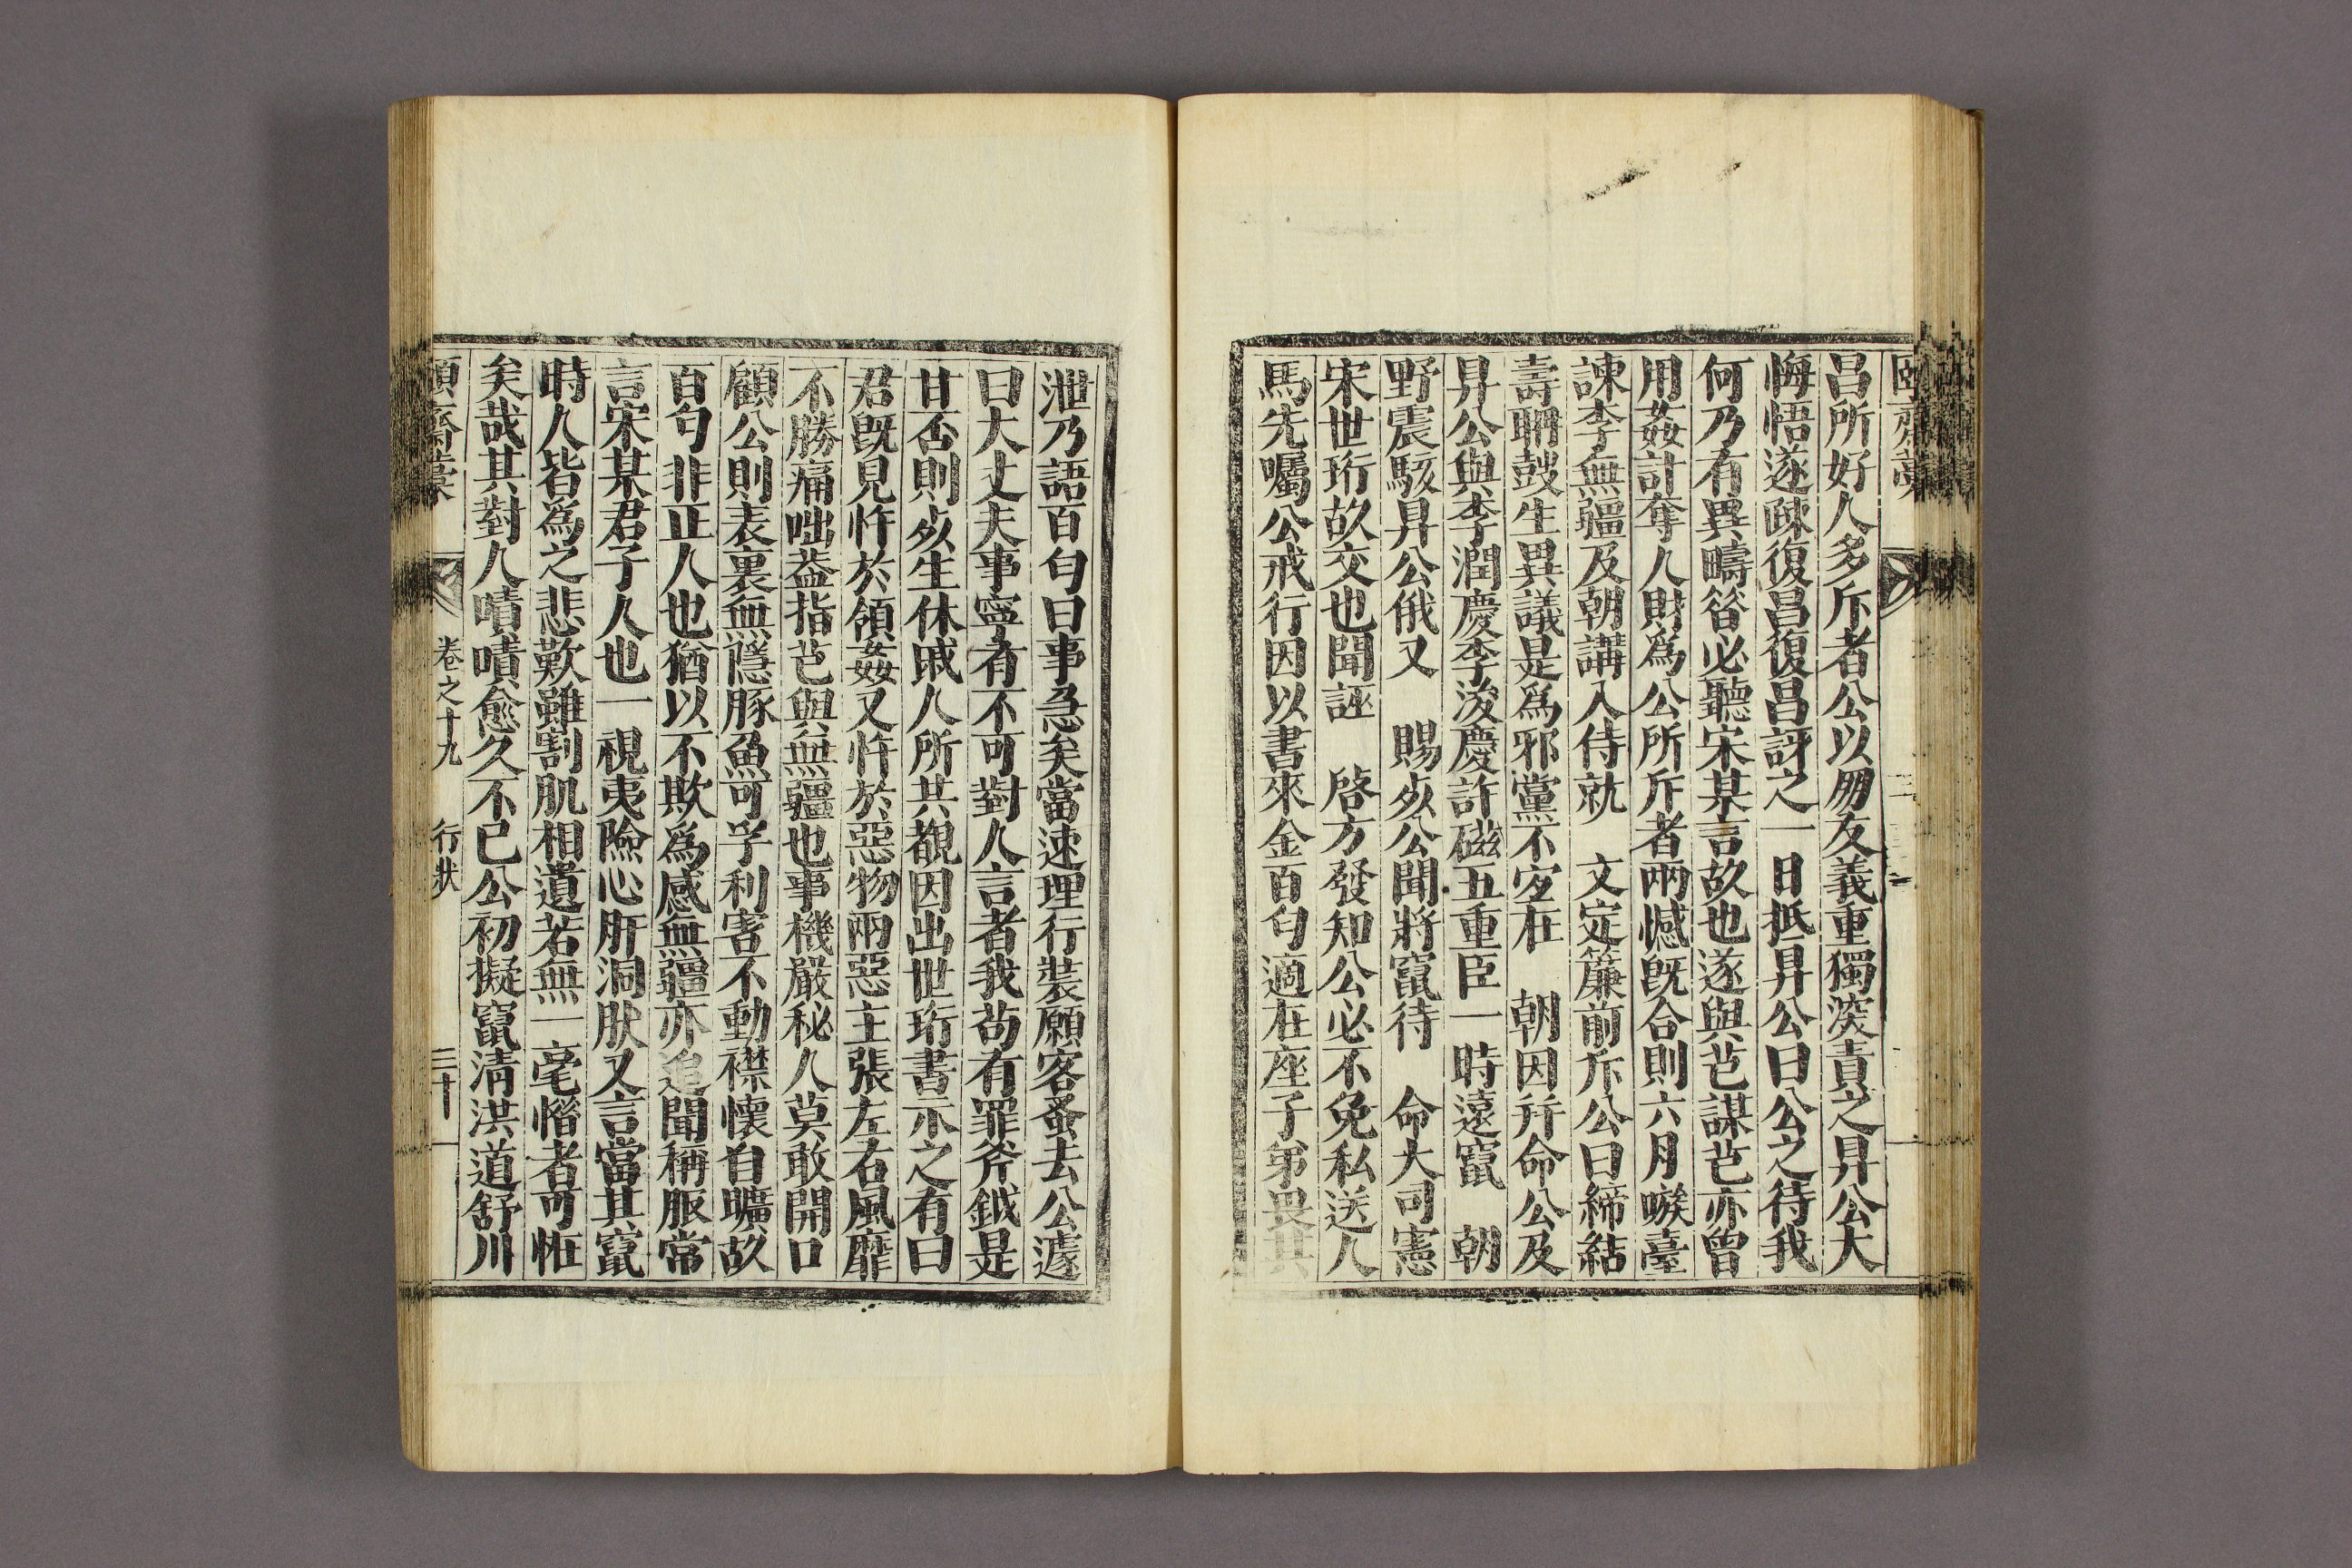 昌所好人多斥者公以朋友義重獨深責之昇公大
悔悟遂疎復昌復昌訝之一日抵昇公曰公之待我
何乃有異疇昝必聽宋某言故也遂與芑謀芑亦曾
用姦計奪人財爲公所斥者兩憾旣合則六月嗾臺
諫李無疆及朝講入侍就 文定簾前斥公曰締結
壽聃鼓生異議是爲邪黨不宜在 朝因幷命公及
昇公與李潤慶李浚慶許磁五重臣一時遠竄 朝
野震駭昇公俄又 賜死公聞將竄待 命大司憲
宋世珩故交也聞誣 啓方發知公必不免私送人
馬先囑公戒行因以書來金百勻適在座子弟畏其
泄乃語百勻曰事急矣當速理行裝願客蚤去公遽
曰大丈夫事寧有不可對人言者我苟有罪斧鉞是
甘否則死生休戚人所共覩因出世珩書示之有曰
君旣見忤於領姦又忤於惡物兩惡主張左右風靡
不勝痛咄葢指芑與無疆也事機嚴秘人莫敢開口
顧公則表裏無隱豚魚可孚利害不動襟懷自曠故
百勻非正人也猶以不欺爲感無疆亦追聞稱服常
言宋某君子人也一視夷險心肝洞肤又言當其竄
時人皆爲之悲歎雖割肌相遺若無一毫惜者可恠
矣哉其對人嘖嘖愈久不已公初擬竄淸洪道舒川
頤齋藁 卷之十九 行狀 三十